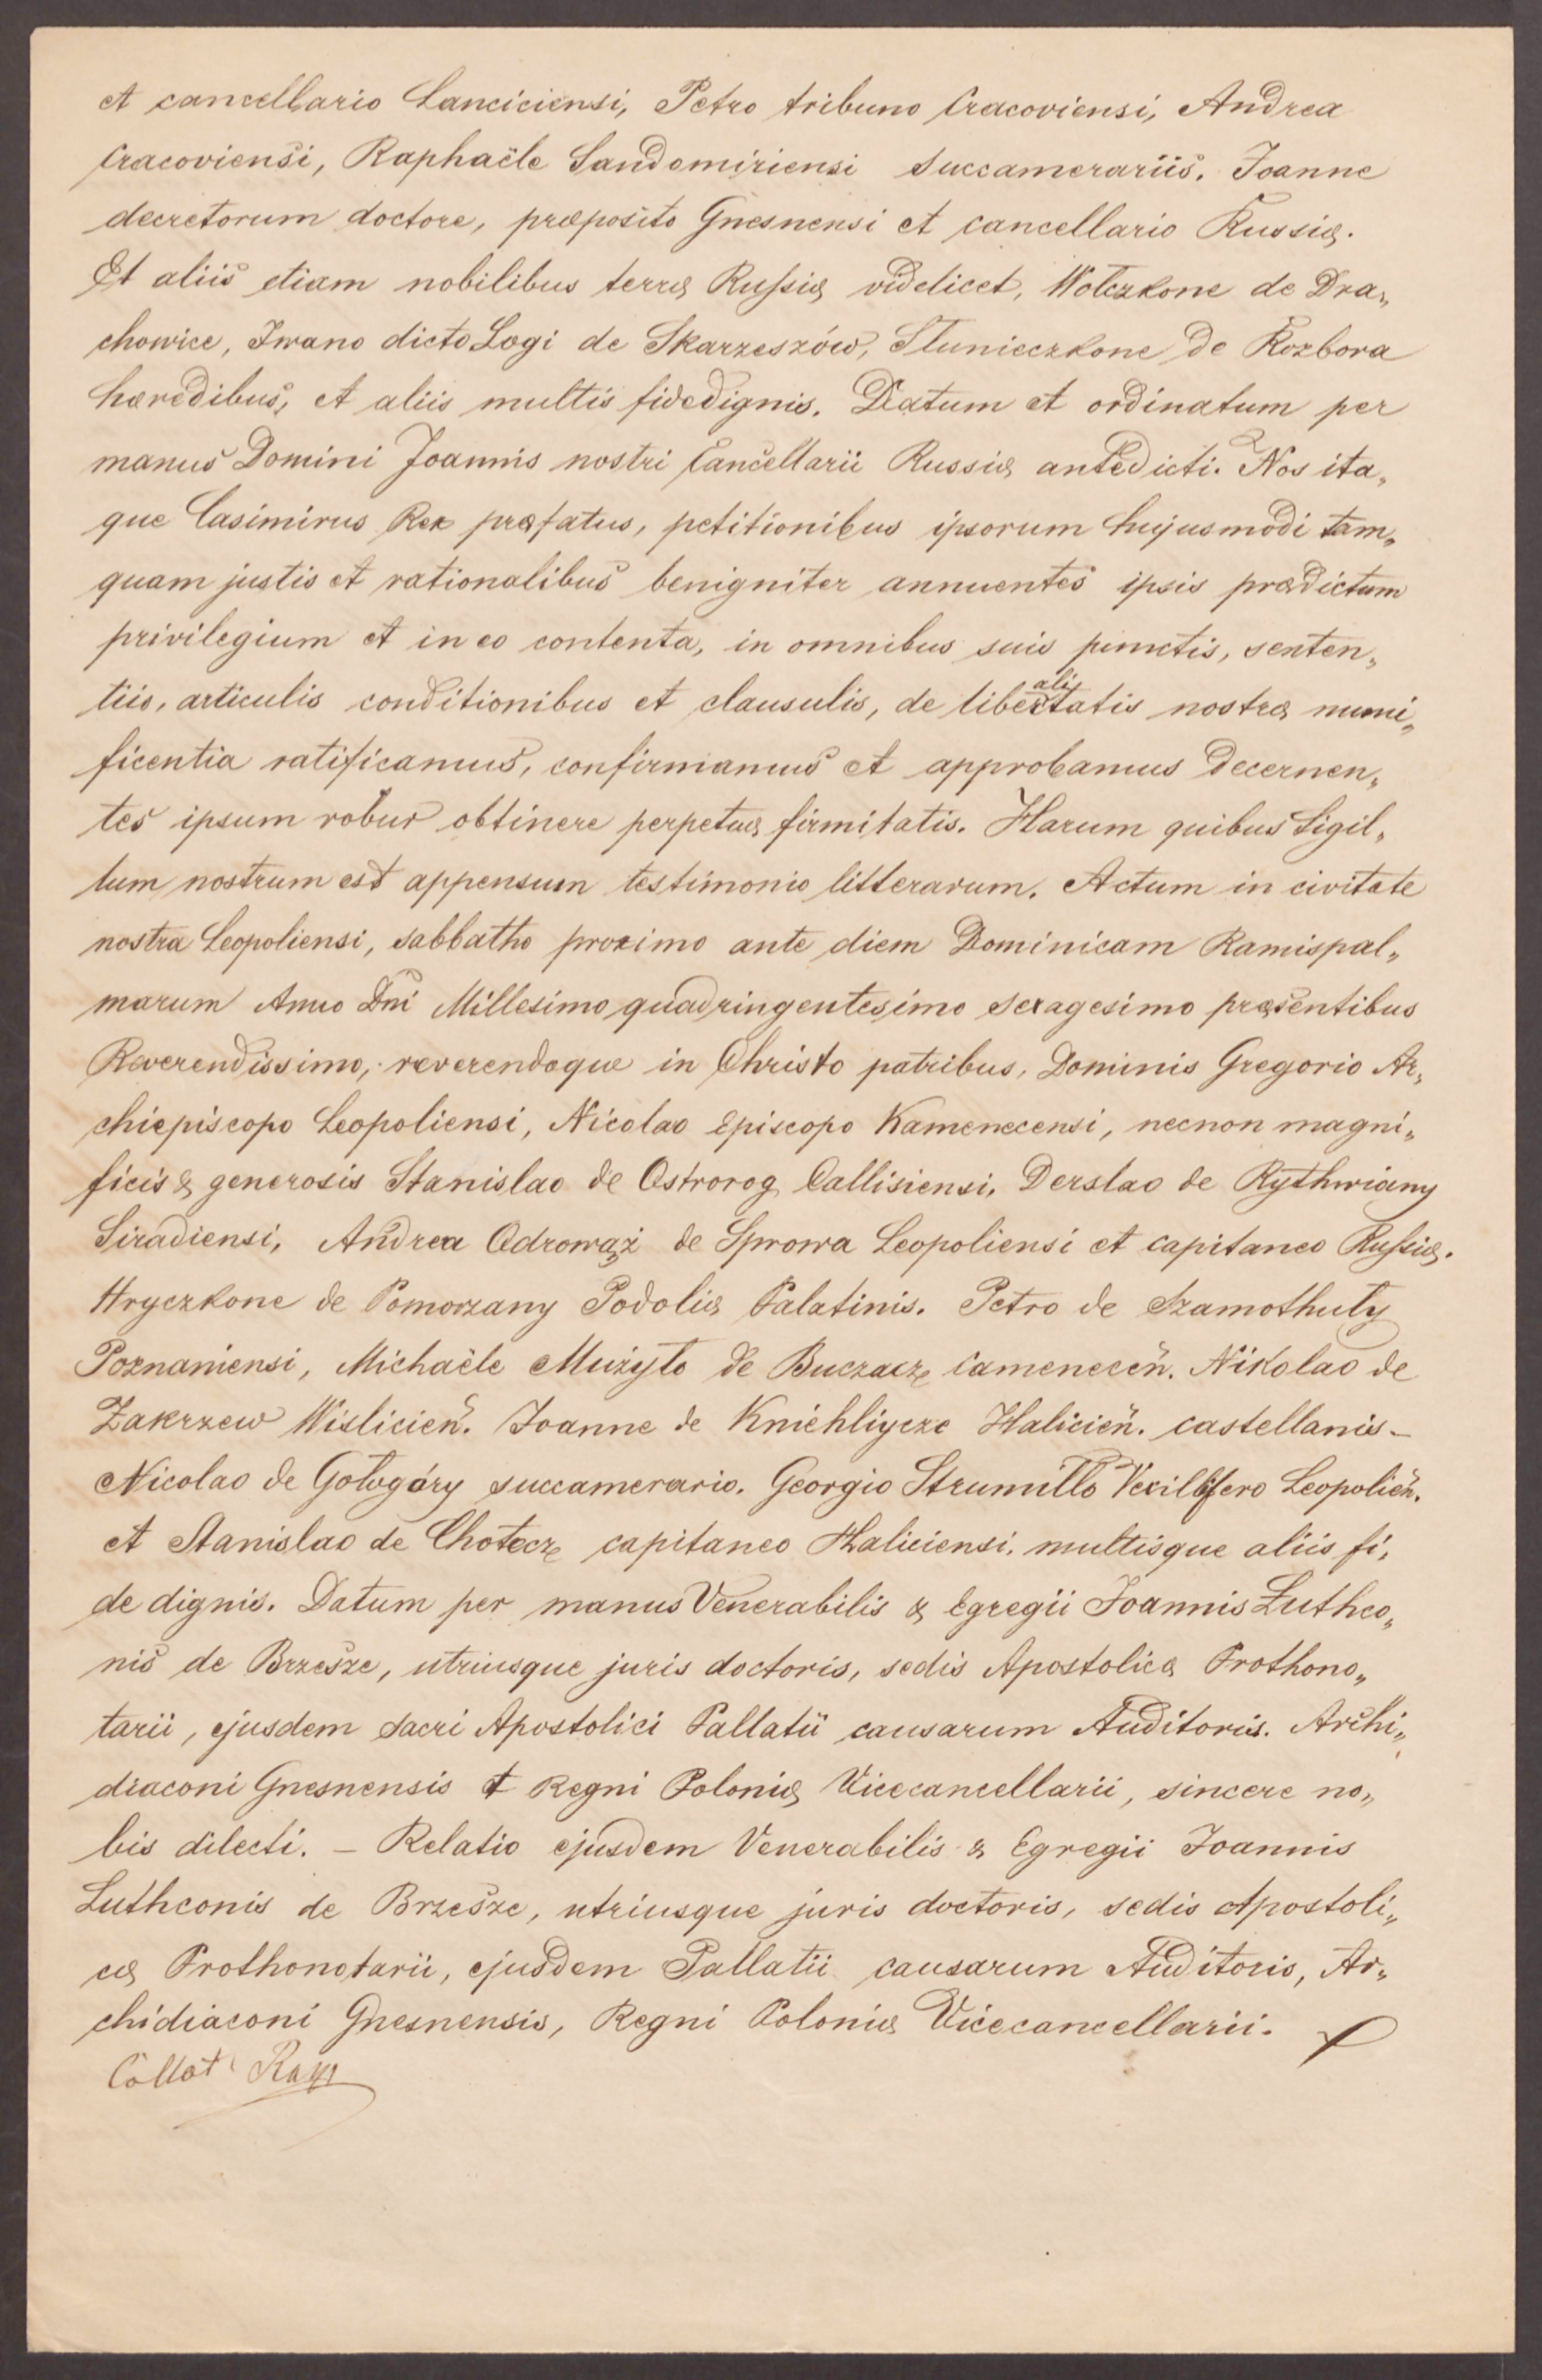 et cancellario Lanciciensi, Petro tribuno Cracoviensi, Andrea
Cracoviensi, Raphaële Sandomiriensi succamerariis. Joanne
decretorum doctore, præposito Gnesnensi et cancellario Russiæ.
Et aliis etiam nobilibus terræ Russiæ videlicet, Wolczkone de Dra„
chowice, Iwano dicto Logi de Skarzeszów, Stunieczkone de Rozbora
hæredibus, et aliis multis fidedignis. Datum et ordinatum per
manus Domini Joannis nostri Cancellarii Russiæ antedicti. Nos ita„
que Casimirus Rex præfatus, petitionibus ipsorum hujusmodi tam„
quam justis et rationalibus benigniter annuentes ipsis prædictum
privilegium et in eo contenta, in omnibus suis punctis, senten„
tiis, articulis conditionibus et clausulis, de libertatis nostræ muni„
ali
ficentia ratificamus, confirmamus et approbamus decernen„
tes ipsum robur obtinere perpetuæ firmitatis. Harum quibus Sigil„
lum nostrum est appensum testimonio litterarum. Actum in civitate
nostra Leopoliensi, sabbatho proximo ante diem Dominicam Ramispal„
marum Anno Dni Millesimo quadringentesimo sexagesimo præsentibus
Reverendissimo, reverendoque in Christo patribus, Dominis Gregorio Ar„
chiepiscopo Leopoliensi, Nicolao Episcopo Kamenecensi, necnon magni„
ficis & generosis Stanislao de Ostrorog Callisiensi. Derslao de Rythwiany
Siradiensi, Andrea Odrowąż de Sprowa Leopoliensi et capitaneo Russiæ.
Hryczkone de Pomorzany Podoliæ Palatinis. Petro de Szamothuły
Poznaniensi, Michaële Mużyło de Buczacze Camenecen̄. Nikolao de
Zakrzew Wislicien̄. Joanne de Kniehliycze Halicien̄. castellanis –
Nicolao de Gołogóry succamerario. Georgio Strumiłło Vexillifero Leopolien̄.
et Stanislao de Chotecz capitaneo Haliciensi, multisque aliis fi„
de dignis. Datum per manus Venerabilis & Egregii Joannis Luthco„
nis de Brzesze, utriusque juris doctoris, sedis Apostolicæ Prothono„
tarii, ejusdem sacri Apostolici Pallatii causarum Auditoris. Archi„
diaconi Gnesnensis et Regni Poloniæ Vicecancellarii, sincere no„
bis dilecti. – Relatio ejusdem Venerabilis & Egregii Joannis
Luthconis de Brzesze, utriusque juris doctoris, sedis Apostoli„
cæ Prothonotarii, ejusdem Pallatii causarum Auditoris, Ar„
chidiaconi Gnesnensis, Regni Poloniæ Vicecancellarii.
Collat